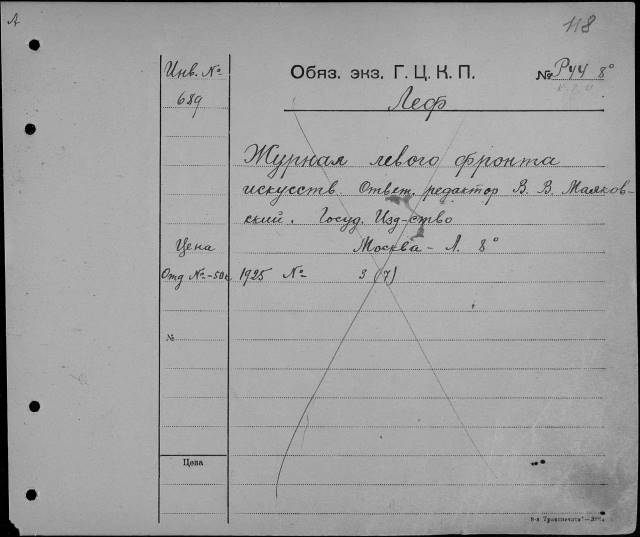 А
118
Инв. №
Обяз. экз. Г. Ц. К. П.
№ Р44 8°
689
Леф
Журнал левого фронта
искусств. Ответ. редактор В. В. Маяков-
ский. Госуд. Изд-ство
Цена
Москва - Л. 8°
Отд № - 50к
1925 № 3 (7)
№
Цена